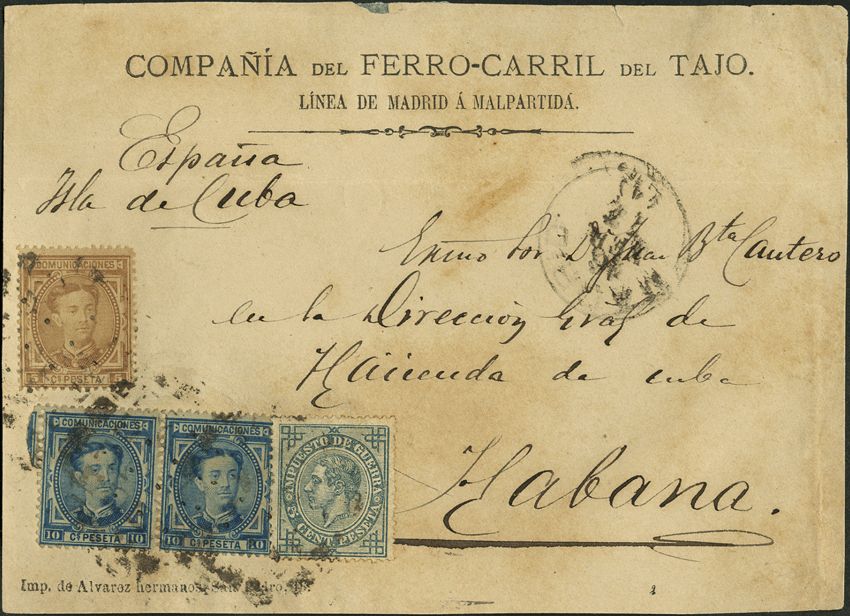 COMPAÑÍA DEL FERRO-CARRIL DEL TAJO.
LÍNEA DE MADRID Á MALPARTIDÁ.
España
Isla de Cuba
Exmo Sor Dn Juan Bta Cantero
en la Dirección Gral de
Hacienda de Cuba
Habana.
COMUNICACIONES
5 Cs PESETA
COMUNICACIONES
10 Cs PESETA 10
COMUNICACIONES
10 Cs PESETA 10
IMPUESTO DE GUERRA
5 CENT. PESETA 5
Imp. de Alvarez hermanos, San Pedro, 16.